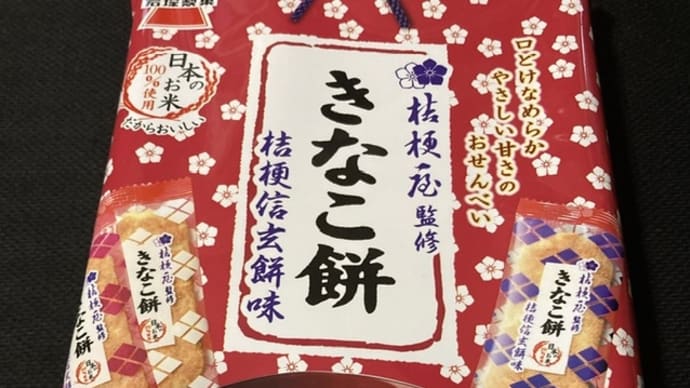 岩塚製菓
日本の
お米
100%使用
だからおいしい
口どけなめらか
やさしい甘さの
おせんべい
桔梗屋監修
きなこ餅
桔梗信玄餅味
桔梗屋監修
きなこ餅
桔梗屋監修
きなこ餅
桔梗信玄餅味